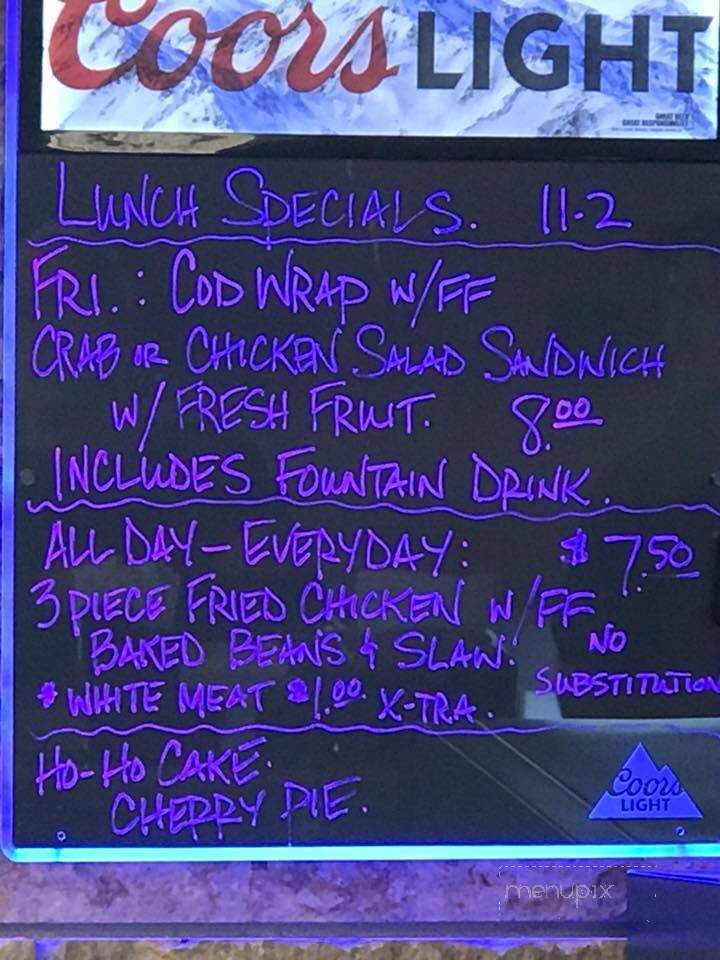 Coors LIGHT
LUNCH SPECIALS. 11-2
FRI.: COD WRAP W/FF
CRAB OR CHICKEN SALAD SANDWICH
W/ FRESH FRUIT. 8.00
INCLUDES FOUNTAIN DRINK.
ALL DAY - EVERYDAY: $7.50
3 PIECE FRIED CHICKEN W/FF
BAKED BEANS & SLAW. NO
SUBSTITUTION
* WHITE MEAT $1.00 X-TRA.
HO-HO CAKE.
CHERRY PIE.
Coors
LIGHT
menupix